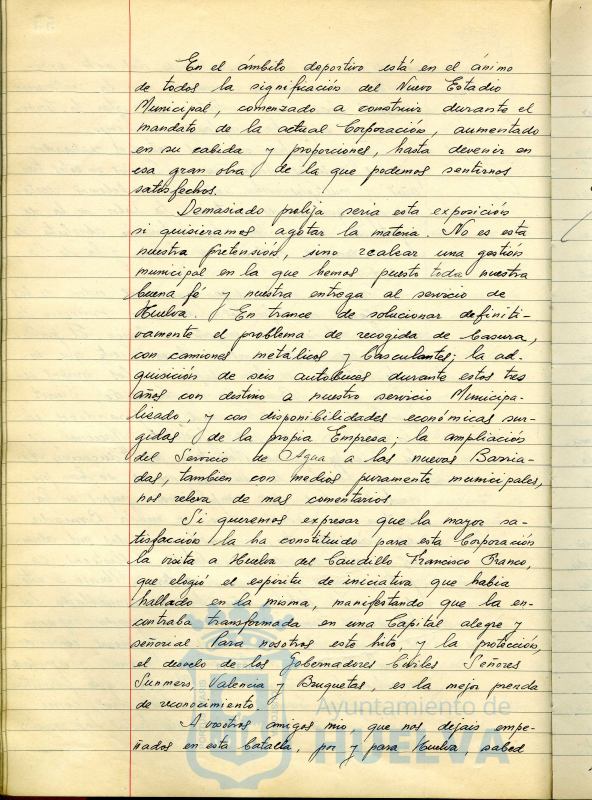 En el ámbito deportivo está en el ánimo
de todos la significación del Nuevo Estadio
Municipal, comenzado a construir durante el
mandato de la actual Corporación, aumentado
en su cabida y proporciones, hasta devenir en
esa gran obra de la que podemos sentirnos
satisfechos.
Demasiado prolija seria esta exposición
si quisieramos agotar la materia. No es esta
nuestra pretensión, sino realzar una gestión
municipal en la que hemos puesto toda nuestra
buena fé y nuestra entrega al servicio de
Huelva. En trance de solucionar definiti-
vamente el problema de recogida de basura,
con camiones metálicos y basculantes; la ad-
quisición de seis autobuces durante estos tres
años con destino a nuestro servicio Municipa-
lizado, y con disponibilidades económicas sur-
gidas de la propia Empresa; la ampliación
del Servicio de Agua a las nuevas Barria-
das, tambien con medios puramente municipales,
nos releva de mas comentarios
Si queremos expresar que la mayor sa-
tisfacción la ha constituido para esta Corporación
la visita a Huelva del Caudillo Francisco Franco,
que elogió el espiritu de iniciativa que habia
hallado en la misma, manifestando que la en-
contraba transformada en una Capital alegre y
señorial. Para nosotros este hito, y la protección,
el desvelo de los Gobernadores Civiles Señores
Summers, Valencia y Bruguetas, es la mejor prenda
de reconocimiento.
A vosotros amigos mio que nos dejais empe-
ñados en esta batalla, por y para Huelva sabed
Ayuntamiento de
HUELVA